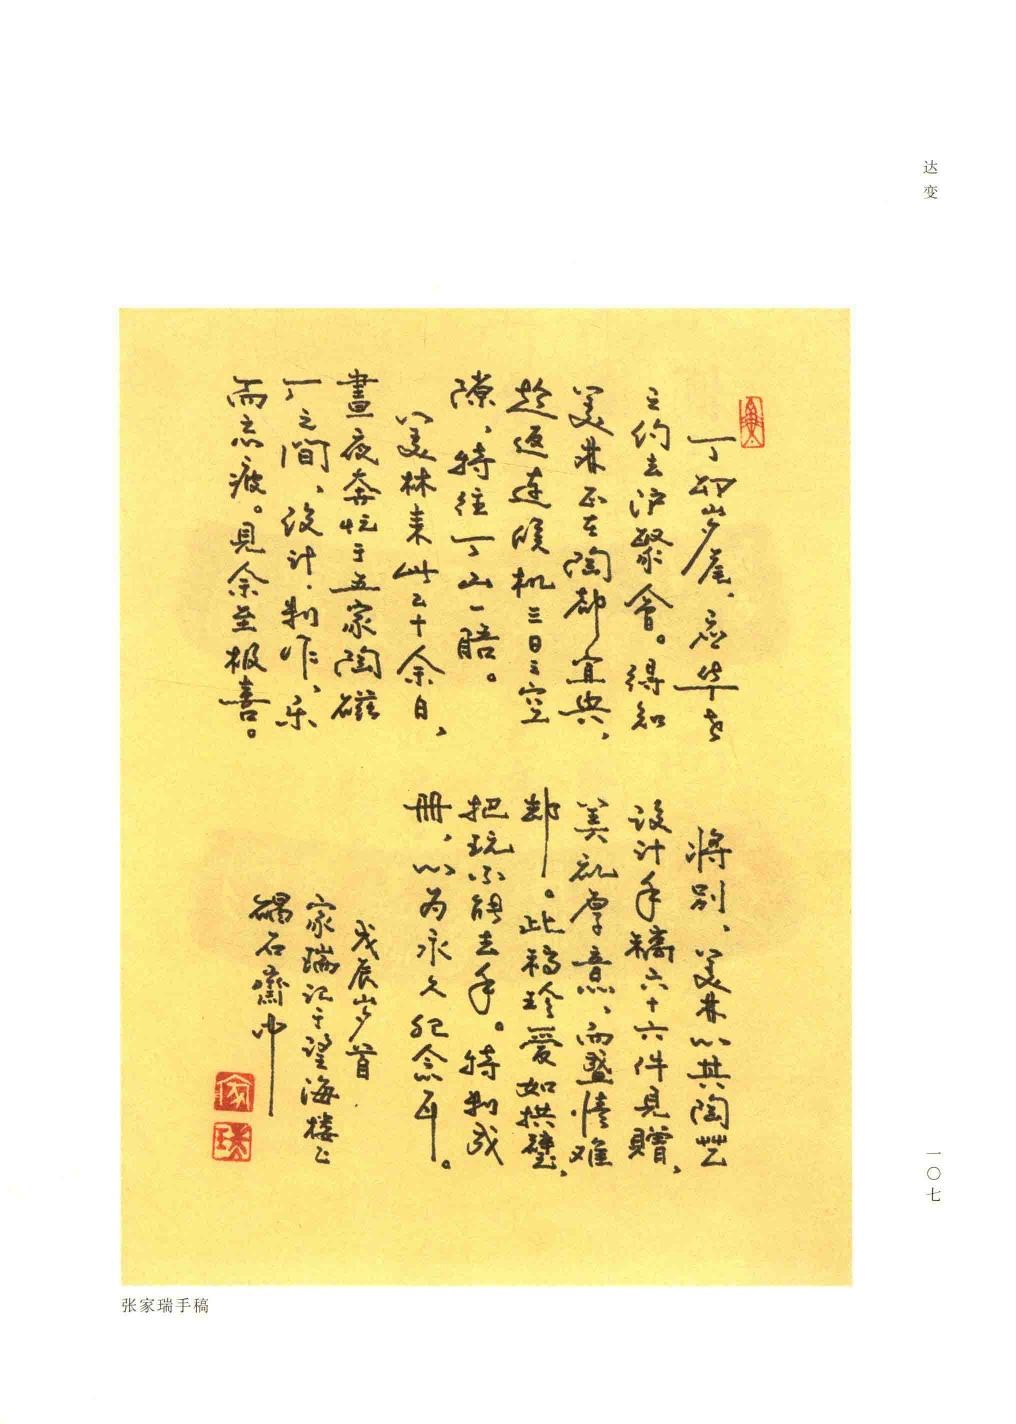 达变
丁卯岁尾、应华君
之约去沪聚会。得知
美林正在陶都宜兴，
趁返连候机三日之空
隙，特往丁山一晤。
美林来此二十余日，
晝夜奔忙于五家陶磁
厂之间，设计、制作、乐
而忘疲。見余至极喜。
將别，美林以其陶艺
设计手稿六十六件見贈，
美礼厚意，而盛情难
却。此稿珍爱如拱璧，
把玩不能去手。特制成
冊，以为永久纪念耳。
戊辰岁首
家瑞记于望海楼上
碣石齋中
家瑞
一〇七
张家瑞手稿